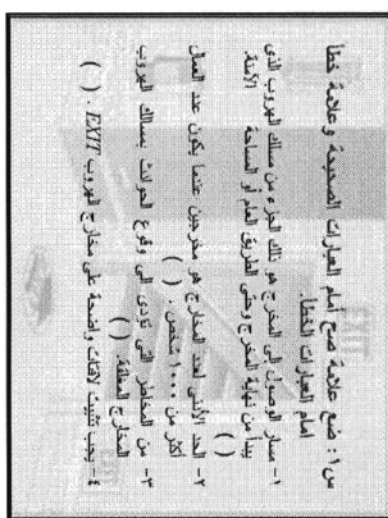 س١: ضع علامة صح أمام العبارات الصحيحة وعلامة خطأ
أمام العبارات الخطأ.
١- مسار الوصول إلى المخرج هو ذلك الجزء من مسلك الهروب الذى
يبدأ من نهاية المخرج وحتى الطريق العام أو المساحة الآمنة.
( )
٢- الحد الأدنى لعدد المخارج هو مخرجين عندما يكون عدد العمال
أكثر من ١٠٠٠ شخص . ( )
٣- من المخاطر التى تؤدى الى وقوع الحوادث بمسالك الهروب
المخارج المغلقة. ( )
٤- يجب تثبيت لافتات واضحة على مخارج الهروب EXIT . ( )
EXIT
EXIT